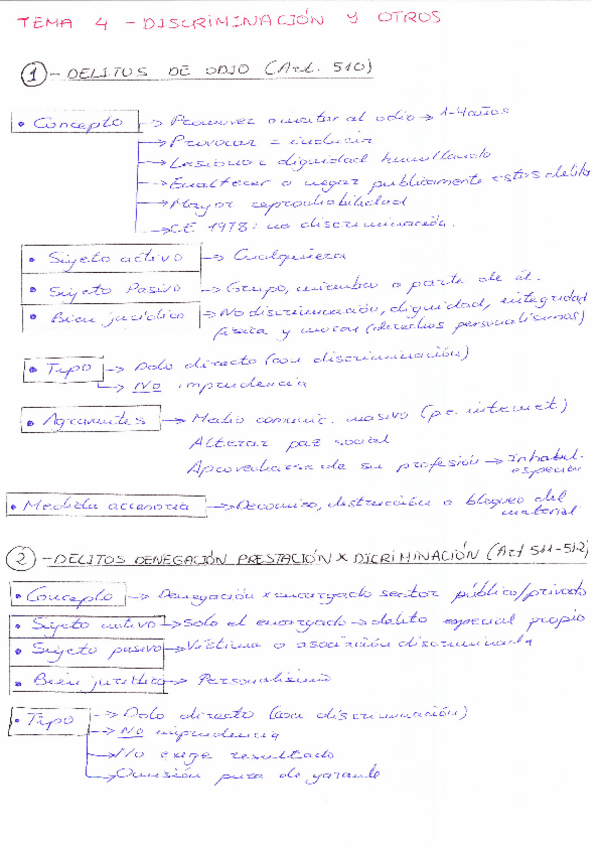 TEMA 4 - DISCRIMINACIÓN Y OTROS
1 - DELITOS DE ODIO (Art. 510)
• Concepto → Promover o incitar al odio → 1-4 años
→ Provocar = inducir
→ Lesionar dignidad humillando
→ Enaltecer o negar publicamente estos delitos
→ Mayor reprochabilidad
→ C.E 1978: no discriminación.
• Sujeto activo → Cualquiera
• Sujeto Pasivo → Grupo, miembro o parte de él.
• Bien jurídico → No discriminación, dignidad, integridad
física y moral (derechos personalísimos)
• Tipo → Dolo directo (con discriminación)
→ No imprudencia
• Agravantes → Medio comunic. masivo (pe. internet)
Alterar paz social
Aprovecharse de su profesión → Inhabil.
especial
• Medida accesoria → Decomiso, destrucción o bloqueo del
material
2 - DELITOS DENEGACIÓN PRESTACIÓN X DICRIMINACIÓN (Art 511-512)
• Concepto → Denegación x encargado sector público/privado
• Sujeto activo → Solo el encargado → delito especial propio
• Sujeto pasivo → Víctima o asociación discriminada
• Bien jurídico → Personalísimo
• Tipo → Dolo directo (con discriminación)
→ No imprudencia
→ No exige resultado
→ Omisión pura de garante